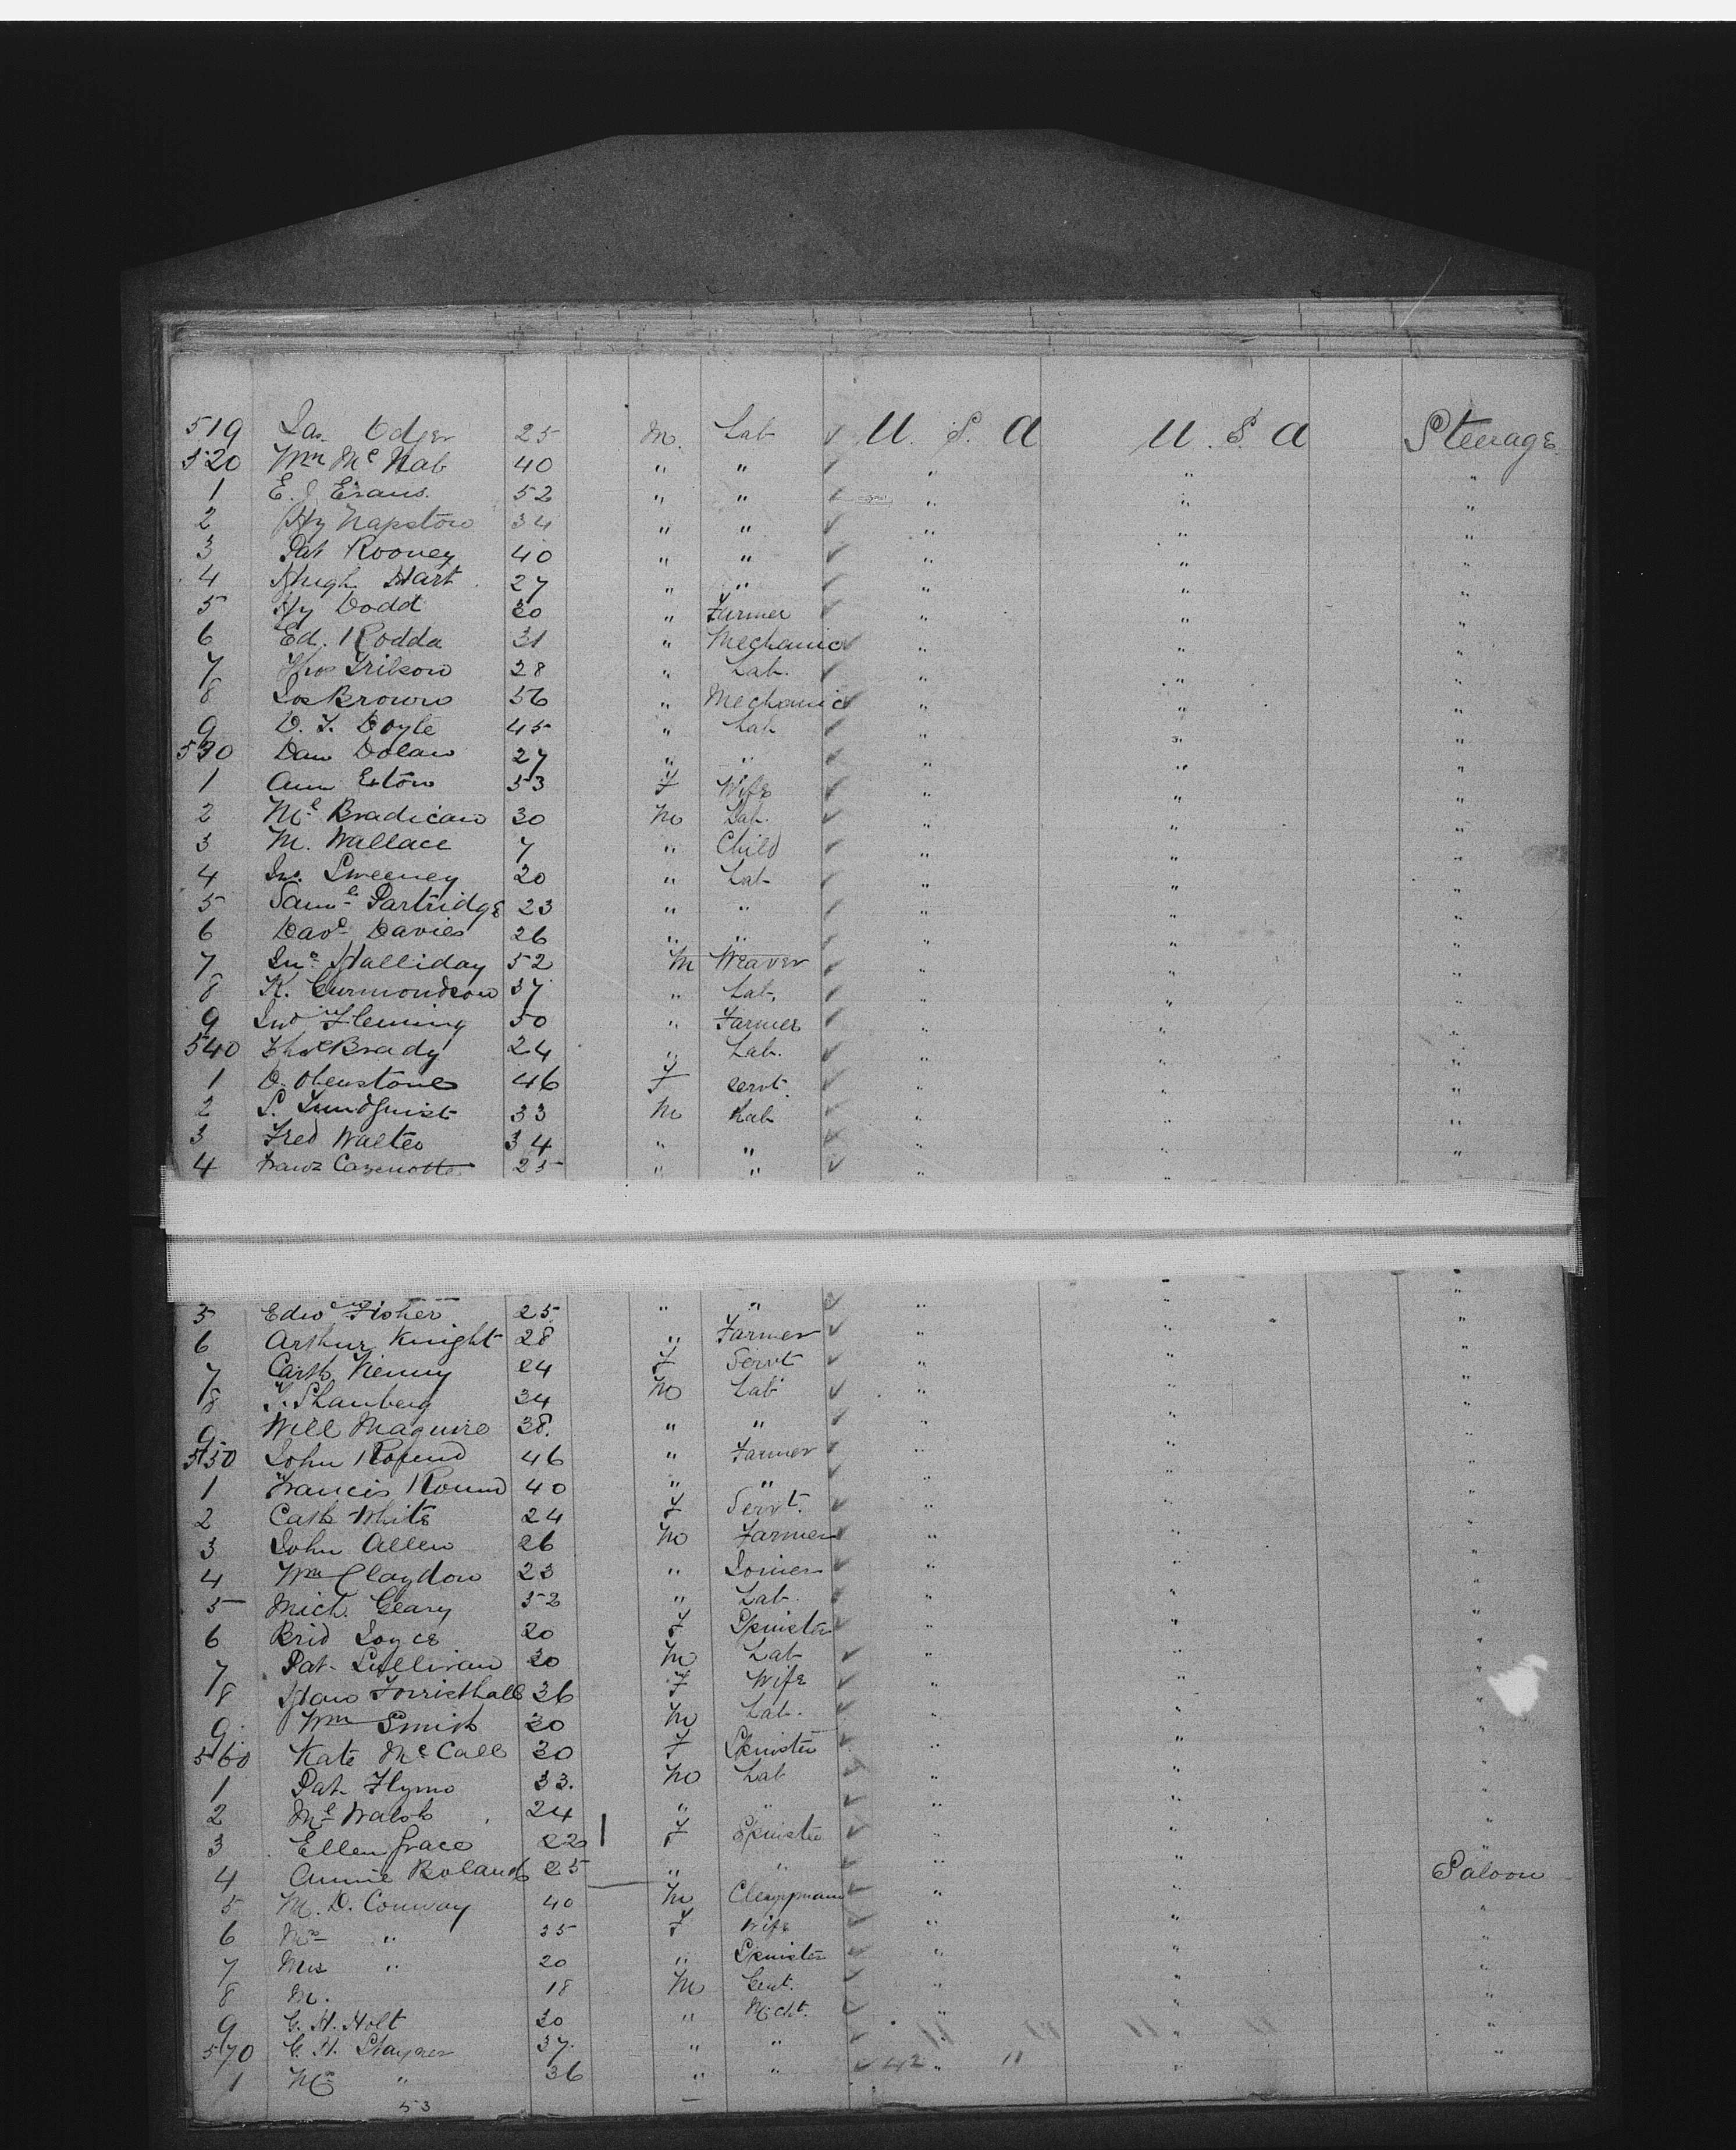 519 Jas. Odger 25 M. Lab ✓ U. S. A U. S. A Steerage
520 Wm Mc Nab 40 " " ✓ " " "
1 E. J Evans. 52 " " ✓ " " "
2 Hy Napstow 34 " " ✓ " " "
3 Pat Rooney 40 " " ✓ " " "
4 Hugh Hart 27 " " ✓ " " "
5 Hy Dodd 30 " Farmer ✓ " " "
6 Ed. Rodda 31 " Mechanic ✓ " " "
7 Thos 28 " Lab. ✓ " " "
8 Jos Brown 56 " Mechanic ✓ " " "
9 D. F. Doyle 45 " Lab ✓ " " "
530 Dan Dolan 27 " " ✓ " " "
1 Ann Eston 53 F Wife ✓ " " "
2 Ml Bradican 30 M Lab. ✓ " " "
3 M. Wallace 7 " Child ✓ " " "
4 Jno. Sweeney 20 " Lab ✓ " " "
5 Saml Partridge 23 " " ✓ " " "
6 Davd Davies 26 " " ✓ " " "
7 Jno. Halliday 52 M Weaver ✓ " " "
8 K. 37 " Lab. ✓ " " "
9 Jno Fleming 50 " Farmer ✓ " " "
540 Thos Brady 24 " Lab. ✓ " " "
1 O. 46 F Servt. ✓ " " "
2 S. Lundquist 33 M Lab ✓ " " "
3 Fred Walter 34 " " ✓ " " "
4 Franz 25 " " ✓ " "
5 Edwd Fisher 25 " " ✓ " " "
6 Arthur Knight 28 " Farmer ✓ " " "
7 Cath Kenny 24 F Servt ✓ " " "
8 Shanberg 34 M Lab ✓ " " "
9 Will Maguire 38. " " ✓ " " "
550 John Round 46 " Farmer ✓ " " "
1 Francis Round 40 " " ✓ " " "
2 Cath White 24 F Servt. ✓ " " "
3 John Allen 26 M Farmer ✓ " " "
4 Wm Claydon 23 " Joiner ✓ " " "
5 Mich. Geary 52 " Lab. ✓ " " "
6 Brid Joyce 20 F Spinster ✓ " " "
7 Pat. Sullivan 30 M Lab ✓ " " "
8 Forristhall 36 F Wife ✓ " " "
9 Wm Smith 30 M Lab. ✓ " " "
560 Kate Mc Call 30 F Spinster ✓ " " "
1 Pat. Flynn 33. M Lab ✓ " " "
2 Ml Walsh 24 " " ✓ " " "
3 Ellen Grace 22 F Spinster ✓ " " "
4 Annie Boland 25 " " ✓ " " Saloon
5 M. D. Conway 40 M Clergyman ✓ " " "
6 Mrs " 35 F Wife ✓ " " "
7 Miss " 20 " Spinster ✓ " " "
8 M. 18 M Gent. ✓ " " "
9 G. H. Holt 30 " Mcht. ✓ " " "
570 G. H. Stayner 37. " " ✓ " " "
1 Mrs " 36 " " ✓ 42 " 11 "
53